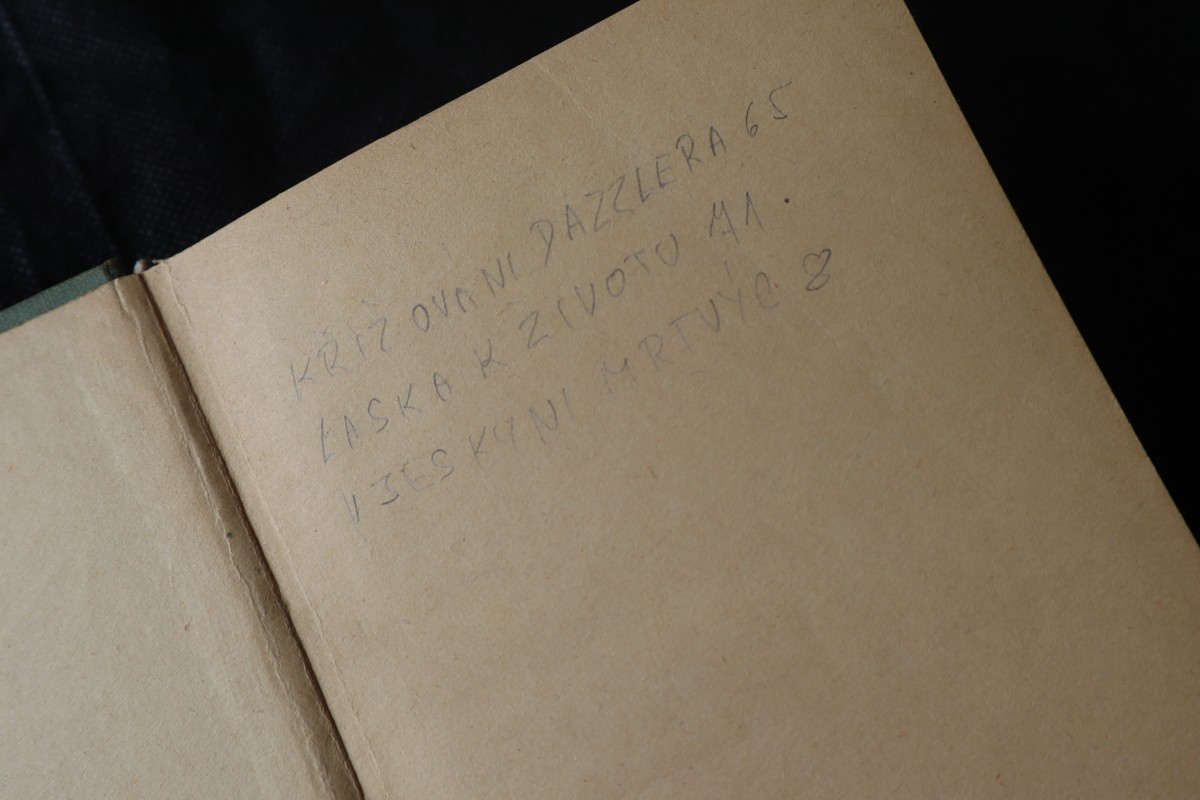 KŘIŽOVANI DAZZLERA 65
LASKA K ŽIVOTU 41.
V JESKYNI MRTVÝC 8